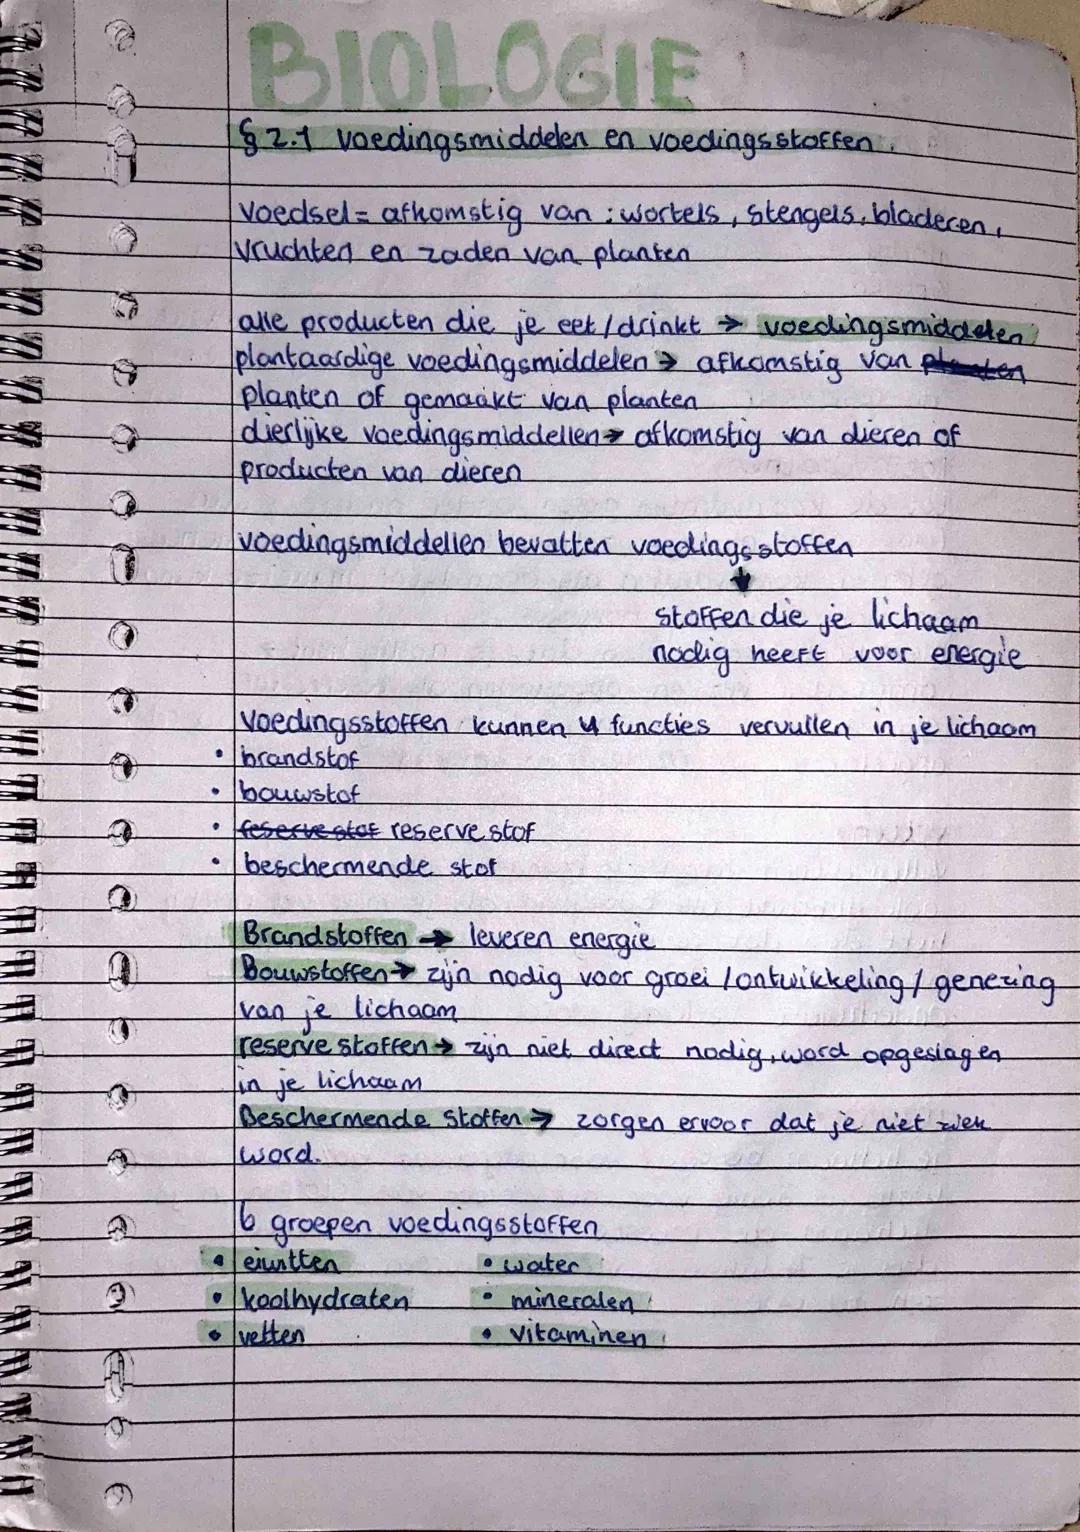 BIOLOGIE
§ 2.1 voedingsmiddelen en voedingsstoffen.
voedsel = afkomstig van : wortels, stengels, bladeren,
vruchten en zaden van planten
alle producten die je eet / drinkt → voedingsmiddelen
plantaardige voedingsmiddelen → afkomstig van planten
planten of gemaakt van planten
dierlijke voedingsmiddellen → afkomstig van dieren of
producten van dieren
voedingsmiddellen bevatten voedingsstoffen
↓
stoffen die je lichaam
nodig heeft voor energie
Voedingsstoffen kunnen 4 functies vervullen in je lichaam
• brandstof
• bouwstof
• feserve stof reserve stof
• beschermende stof
Brandstoffen → leveren energie
Bouwstoffen → zijn nodig voor groei / ontwikkeling / genezing
van je lichaam
reserve stoffen → zijn niet direct nodig, word opgeslagen
in je lichaam
Beschermende stoffen → zorgen ervoor dat je niet ziek
word.
6 groepen voedingsstoffen
• eiwitten • water
• koolhydraten • mineralen
• vetten • vitaminen